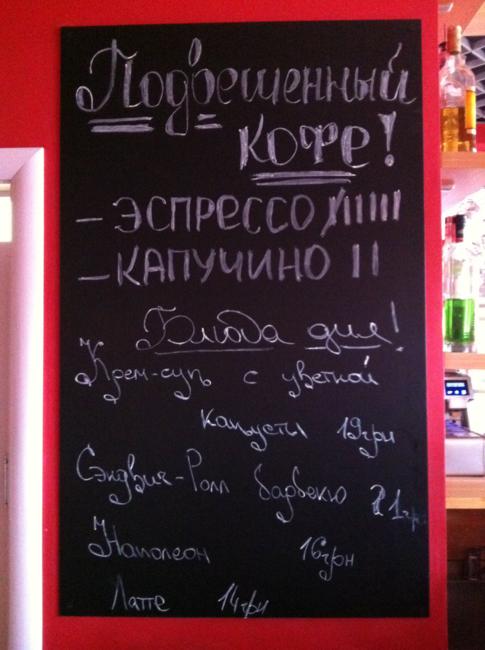 Подвешенный
кофе!
- ЭСПРЕССО IIIIII
- КАПУЧИНО II
Блюда дня!
Крем-суп с цветной
капусты 19грн
Сэндвич-Ролл барбекю 21гр
Наполеон 16грн
Латте 14грн